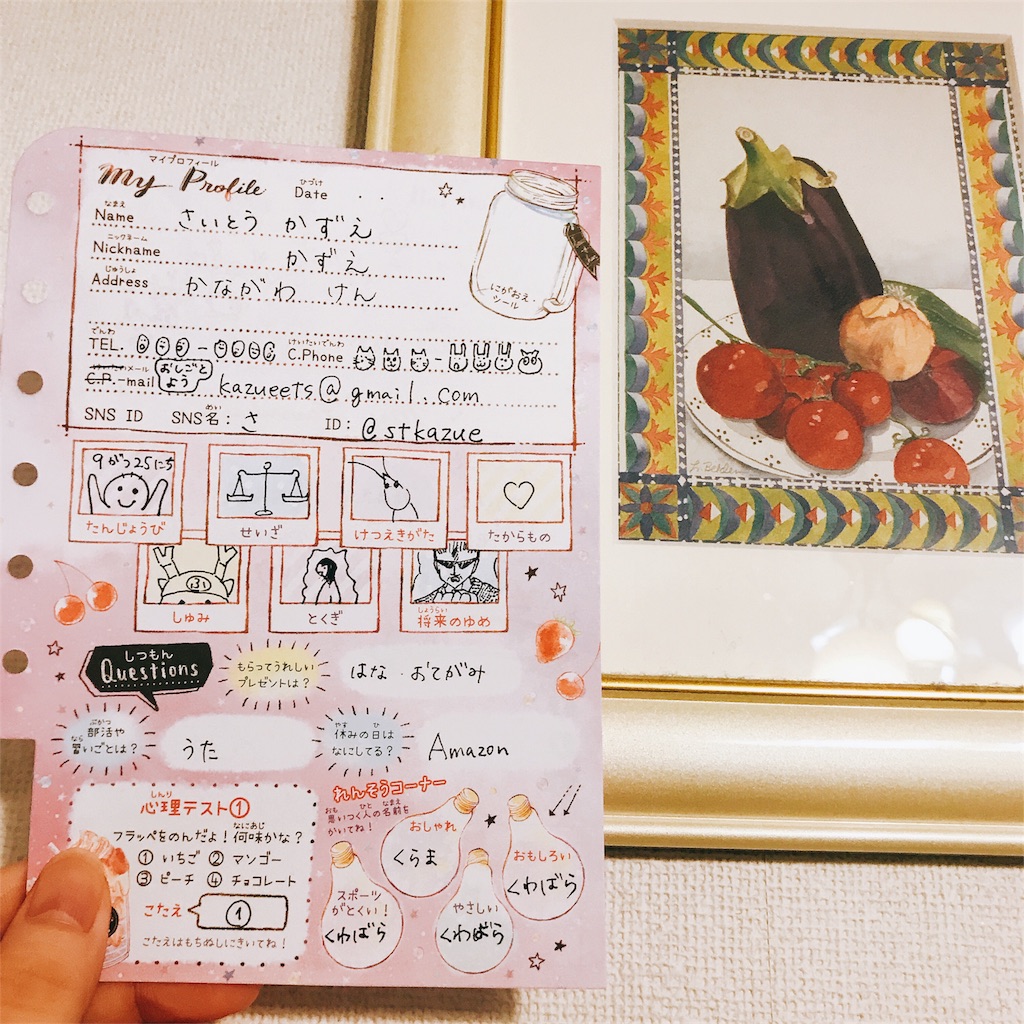 マイプロフィール
My Profile ひづけ Date . .
なまえ
Name さいとう かずえ
ニックネーム
Nickname かずえ
じゅうしょ
Address かながわ けん
でんわ けいたいでんわ
TEL. C.Phone
メール
C.P.-mail おしごとよう kazueets@gmail.com
SNS ID SNS名: さ ID: @stkazue
にがおえ・シール
9がつ25にち
たんじょうび
せいざ
けつえきがた
たからもの
しゅみ
とくぎ
しょうらい
将来のゆめ
しつもん
Questions
もらってうれしい
プレゼントは?
はな・おてがみ
ぶかつ
部活や
なら
習いごとは?
うた
やす ひ
休みの日は
なにしてる?
Amazon
しんり
心理テスト①
なにあじ
フラッペをのんだよ!何味かな?
① いちご ② マンゴー
③ ピーチ ④ チョコレート
こたえ ①
こたえはもちぬしにきいてね!
れんそうコーナー
おも ひと なまえ
思いつく人の名前を
かいてね!
おしゃれ
くらま
おもしろい
くわばら
スポーツ
がとくい!
くわばら
やさしい
くわばら